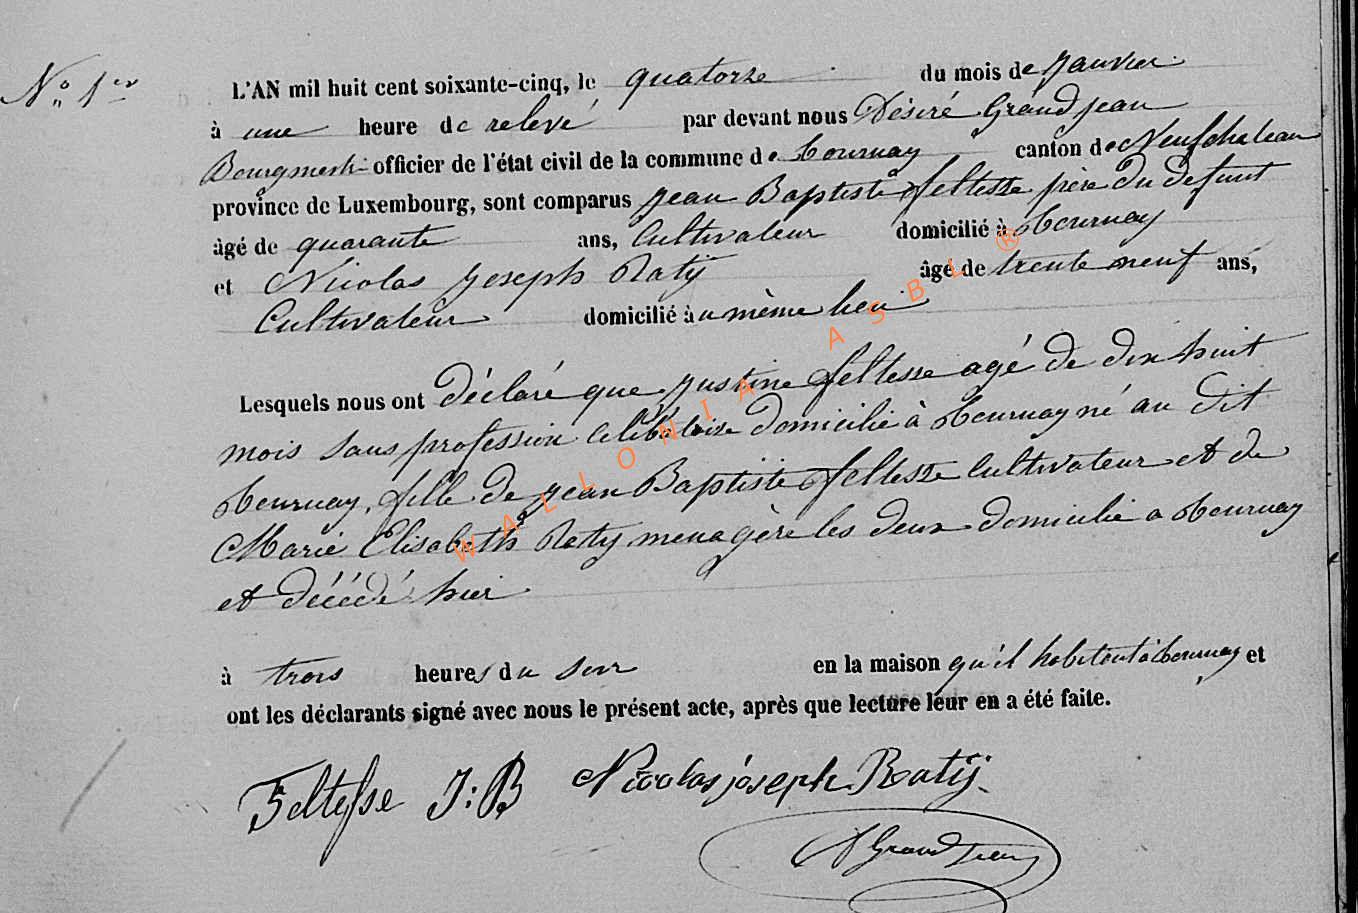 N° 1er
L'AN mil huit cent soixante-cinq, le quatorze du mois de Janvier
à une heure de relevé par devant nous Désiré Grandjean
Bourgmestre officier de l'état civil de la commune de Tournay canton de Neufchateau
province de Luxembourg, sont comparus Jean Baptiste Feltesse père du defunt
âgé de quarante ans, Cultivateur domicilié à Tournay
et Nicolas Joseph Raty âgé de trente neuf ans,
Cultivateur domicilié au même lieu
Lesquels nous ont déclaré que Justine Feltesse agé de dix huit
mois sans profession célibataire domicilié à Tournay né au dit
Tournay, fille de Jean Baptiste Feltesse Cultivateur et de
Marie Elisabeth Raty menagère les deux domicilié a Tournay
et décédé hier
à trois heures du soir en la maison qu'il habitent à Tournay et
ont les déclarants signé avec nous le présent acte, après que lecture leur en a été faite.
Feltesse J:B Nicolas joseph Raty
D Grandjean
WALLONIA ASBL ®